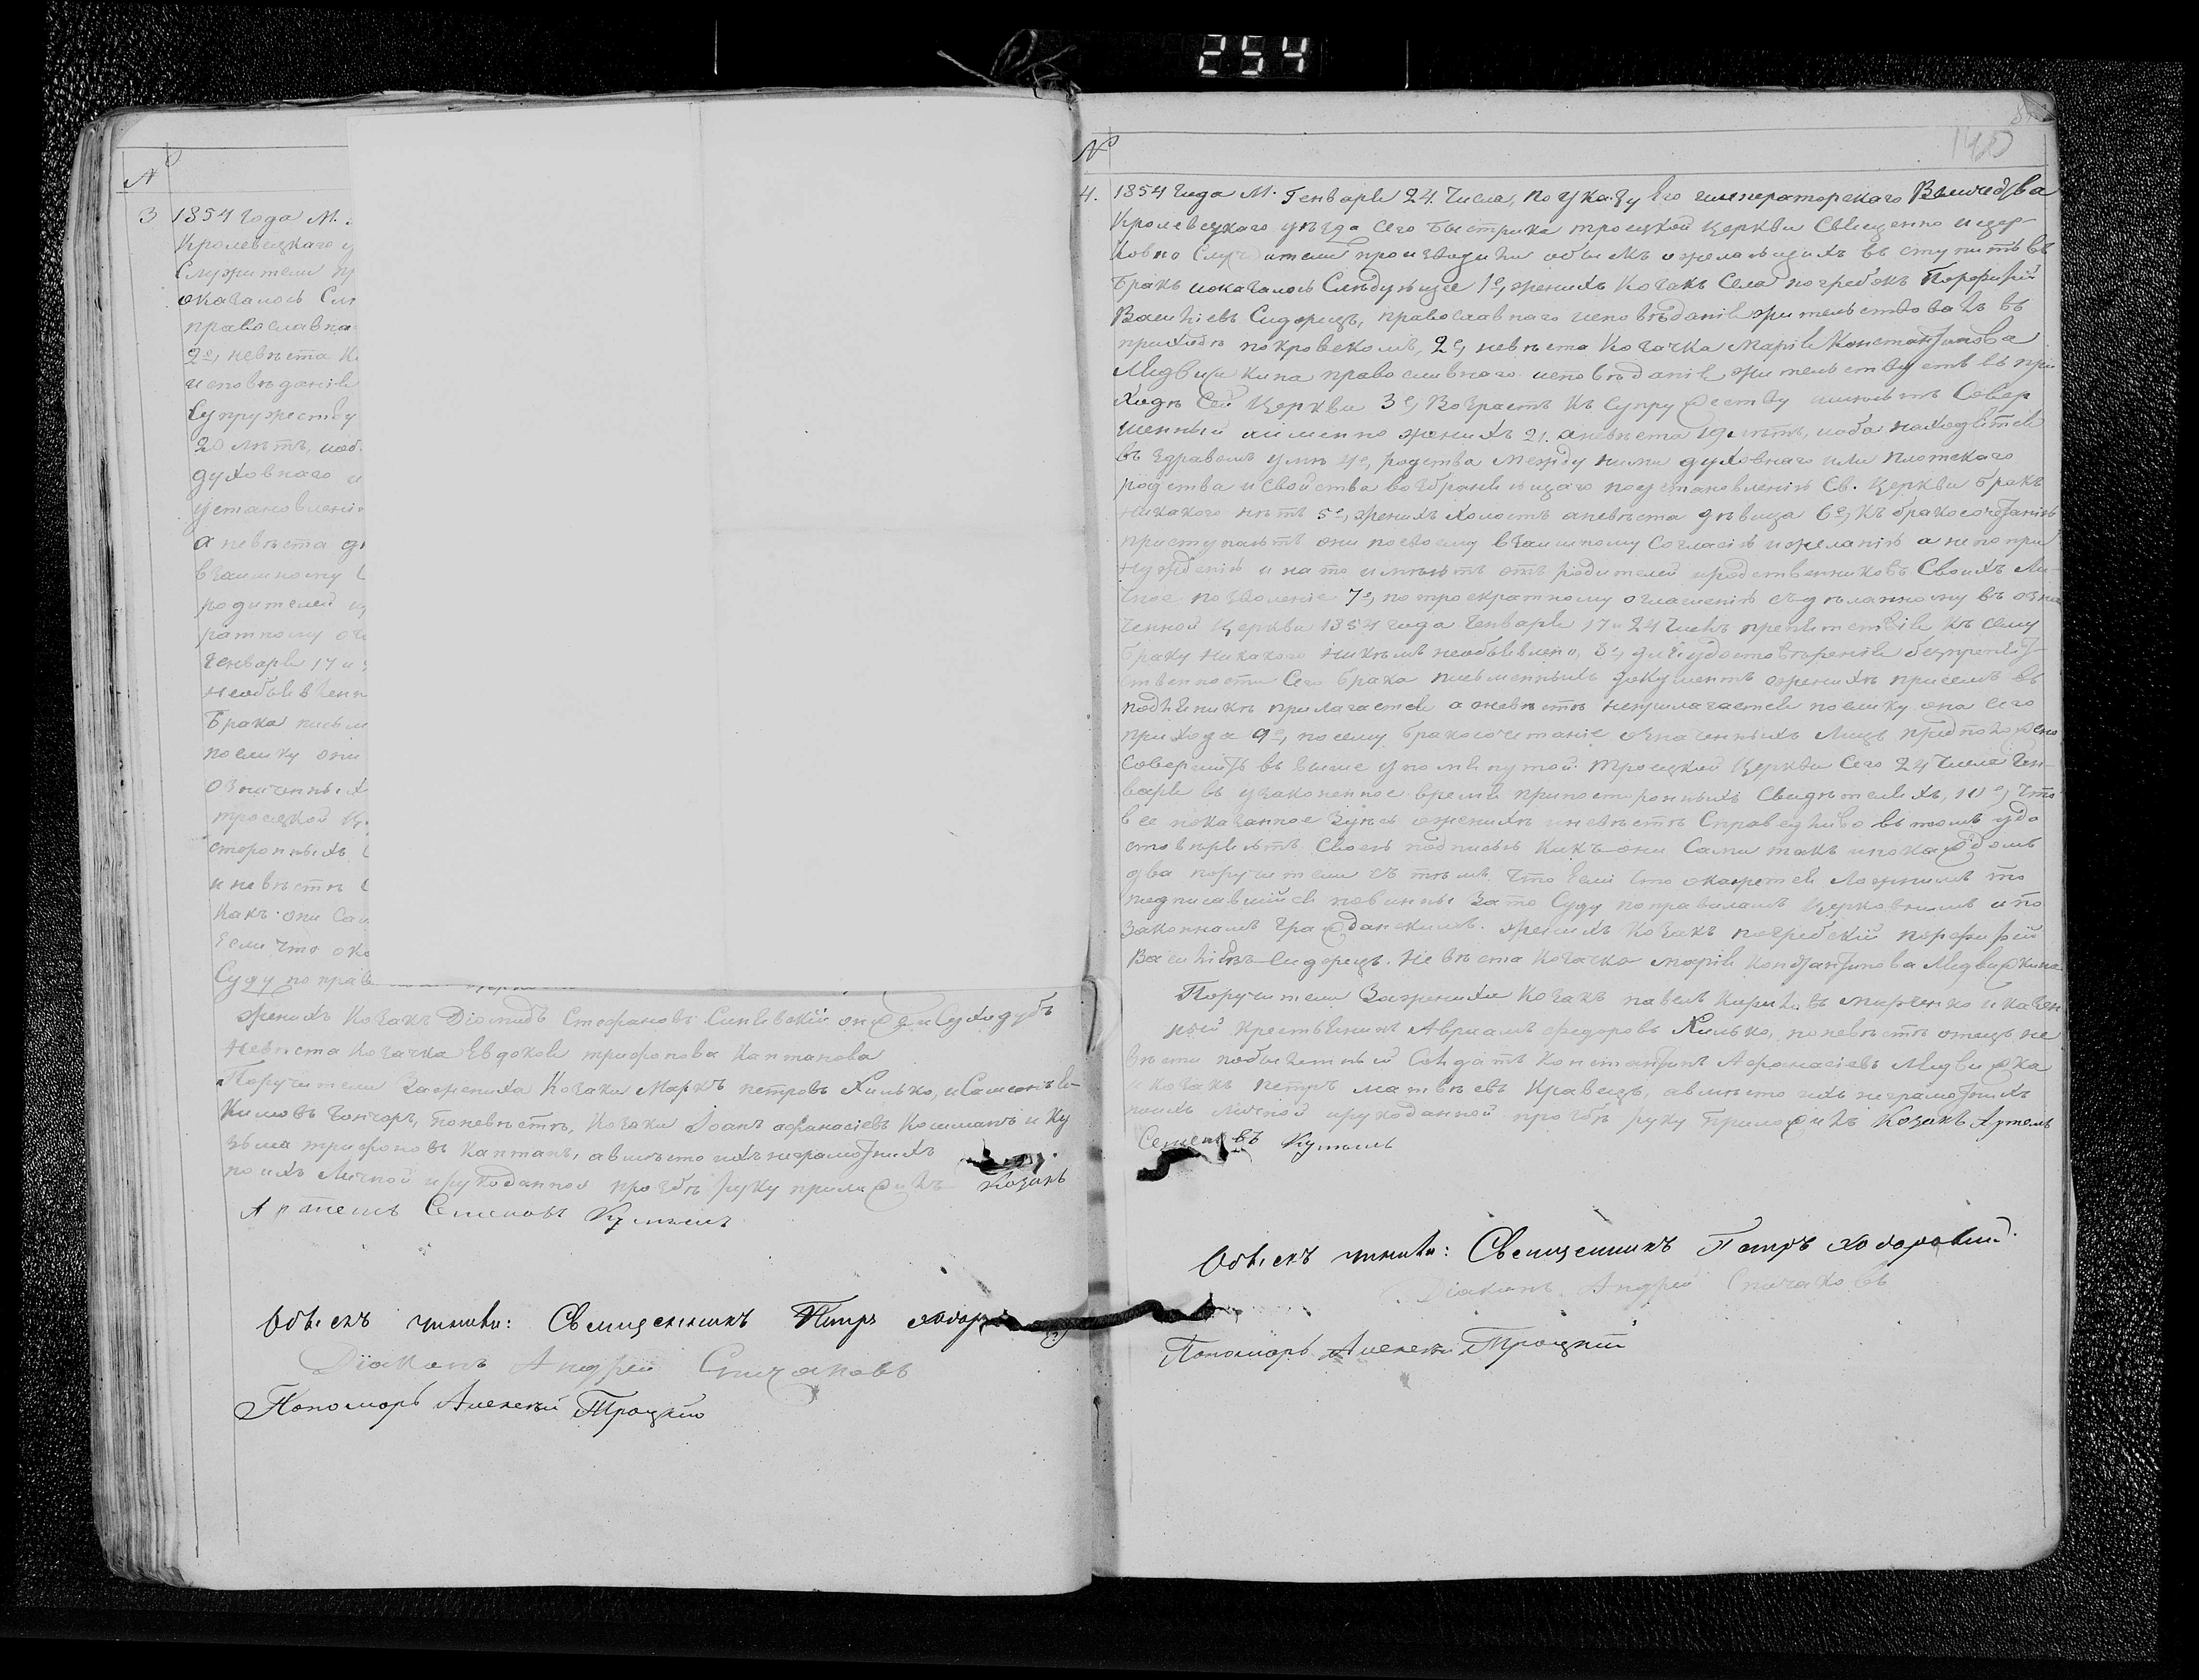 254
№
3 1854 года М.
Кролевецкаго у
Служители пр
оказалось Слѣ
православна
2е, невѣста К
исповѣданія
Супружеству
20 лѣтъ, иоб
духовнаго и
установленія
а невѣста дѣ
взаимному С
родителей и
ратному ог
Генваря 17 и
необъявленн
Брака письм
поелику они
означенныхъ
троецкой Ц
стороннихъ С
и невѣстѣ С
Какъ они Сам
Если что ока
Суду по прав
женихъ Козакъ Діомидъ Стефановъ
невѣста Козачка Евдокія трифонова Каптанова
Поручители Зажениха Козаки Маркъ петровъ Хилько, и Самсонъ Я-
кимовъ Гончаръ, поневѣстѣ, Козаки Іоанъ афанасіевъ Кошманъ и Ку
зьма трифоновъ Каптанъ, авмѣсто ихънеграмотныхъ
по ихъ Личной ирукоданной прозбѣ руку приложилъ Козакъ
Артемъ Семеновъ Кутынь
Обыскъ чинили: Священникъ Петръ
Діаконъ Андрей Спичаковъ
Пономарь Алексѣй Троцкій
№
140
4. 1854 года М. Генваря 24. Числа, по указу Его императорскаго Величества
Кролевецкаго уѣзда Сего быстрика троецкой церкви Священно ицер
ковно Служители производили обыскъ ожелающихъ вступить въ
бракъ иоказалось Слѣдующее 1е, женихъ Козакъ Села погребокъ Порфирій
Василіевъ Сидорецъ, православнаго исповѣданія жительствовалъ въ
приходѣ покровскомъ, 2е, невѣста Козачка Марія Константинова
Медвижкина православнаго исповѣданія, жительствуетъ въ при
ходѣ Сей Церкви 3е, Возрастъ къ Супружеству имѣютъ Совер
шенный аименно женихъ 21. аневѣста 19 лѣтъ, иоба находятся
въ здравомъ умѣ 4е, родства между ними духовнаго или плотскаго
родства и Свойства возбраняющаго поустановленію Св. Церкви бракъ
никакого нѣтъ 5е, женихъ холостъ аневѣста дѣвица 6е, къ бракосочетанію
приступаютъ они посвоему взаимному Согласію ижеланію а непопри
нужденію и нато имѣютъ отъ родителей иродственниковъ Своихъ Ли-
чное позволеніе 7е, потроекратному оглашенію сдѣланному въ озна
ченной Церкви 1854 года Генваря 17 и 24 Числъ препятствія къ сему
браку никакого никѣмъ необъявлено, 8е, для удостовѣренія безпрепят
ственности Сего брака письменныхъ документъ оженихѣ присемъ въ
подлиникѣ прилагается а оневѣстѣ неприлагается поелику она сего
прихода 9е, посему бракосочетаніе означенныхъ Лицъ предположено
совершить въ вышеупомянутой троецкой Церкви Сего 24 Числа Ген-
варя въ узаконенное время припостороннихъ Свидѣтеляхъ, 10е, Что
все показанное Здѣсь оженихѣ иневѣстѣ Справедливо втомъ удо
стовѣряютъ Своею подписью какъ они Сами такъ ипокаждомъ
два поручители съ тѣмъ, что Если Что окажется Ложнымъ то
подписавшійся повинны Зато Суду поправиламъ Церковнымъ ипо
Законамъ Гражданскимъ. женихъ Козакъ погребскій порфирій
Василіевъ Сидорецъ. Невѣста Козачка марія Константинова Медвижкина
Поручители Зажениха Козакъ павелъ Кириловъ и казен
ный крестьянинъ Авраамъ федоровъ Хилько, поневѣстѣ отецъ не
вѣсты Солдатъ константинъ Афонасіевъ Медвижка
и козакъ петръ матвѣевъ Кравецъ, авмѣсто ихъ неграмотныхъ
поихъ личной ирукоданной прозбѣ руку Приложилъ Козакъ Артемъ
Семеновъ Кутынь
Обыскъ чинили: Священникъ Петръ Ходоровскій.
Діаконъ Андрей Спичаковъ
Пономарь Алексѣй Троцкій